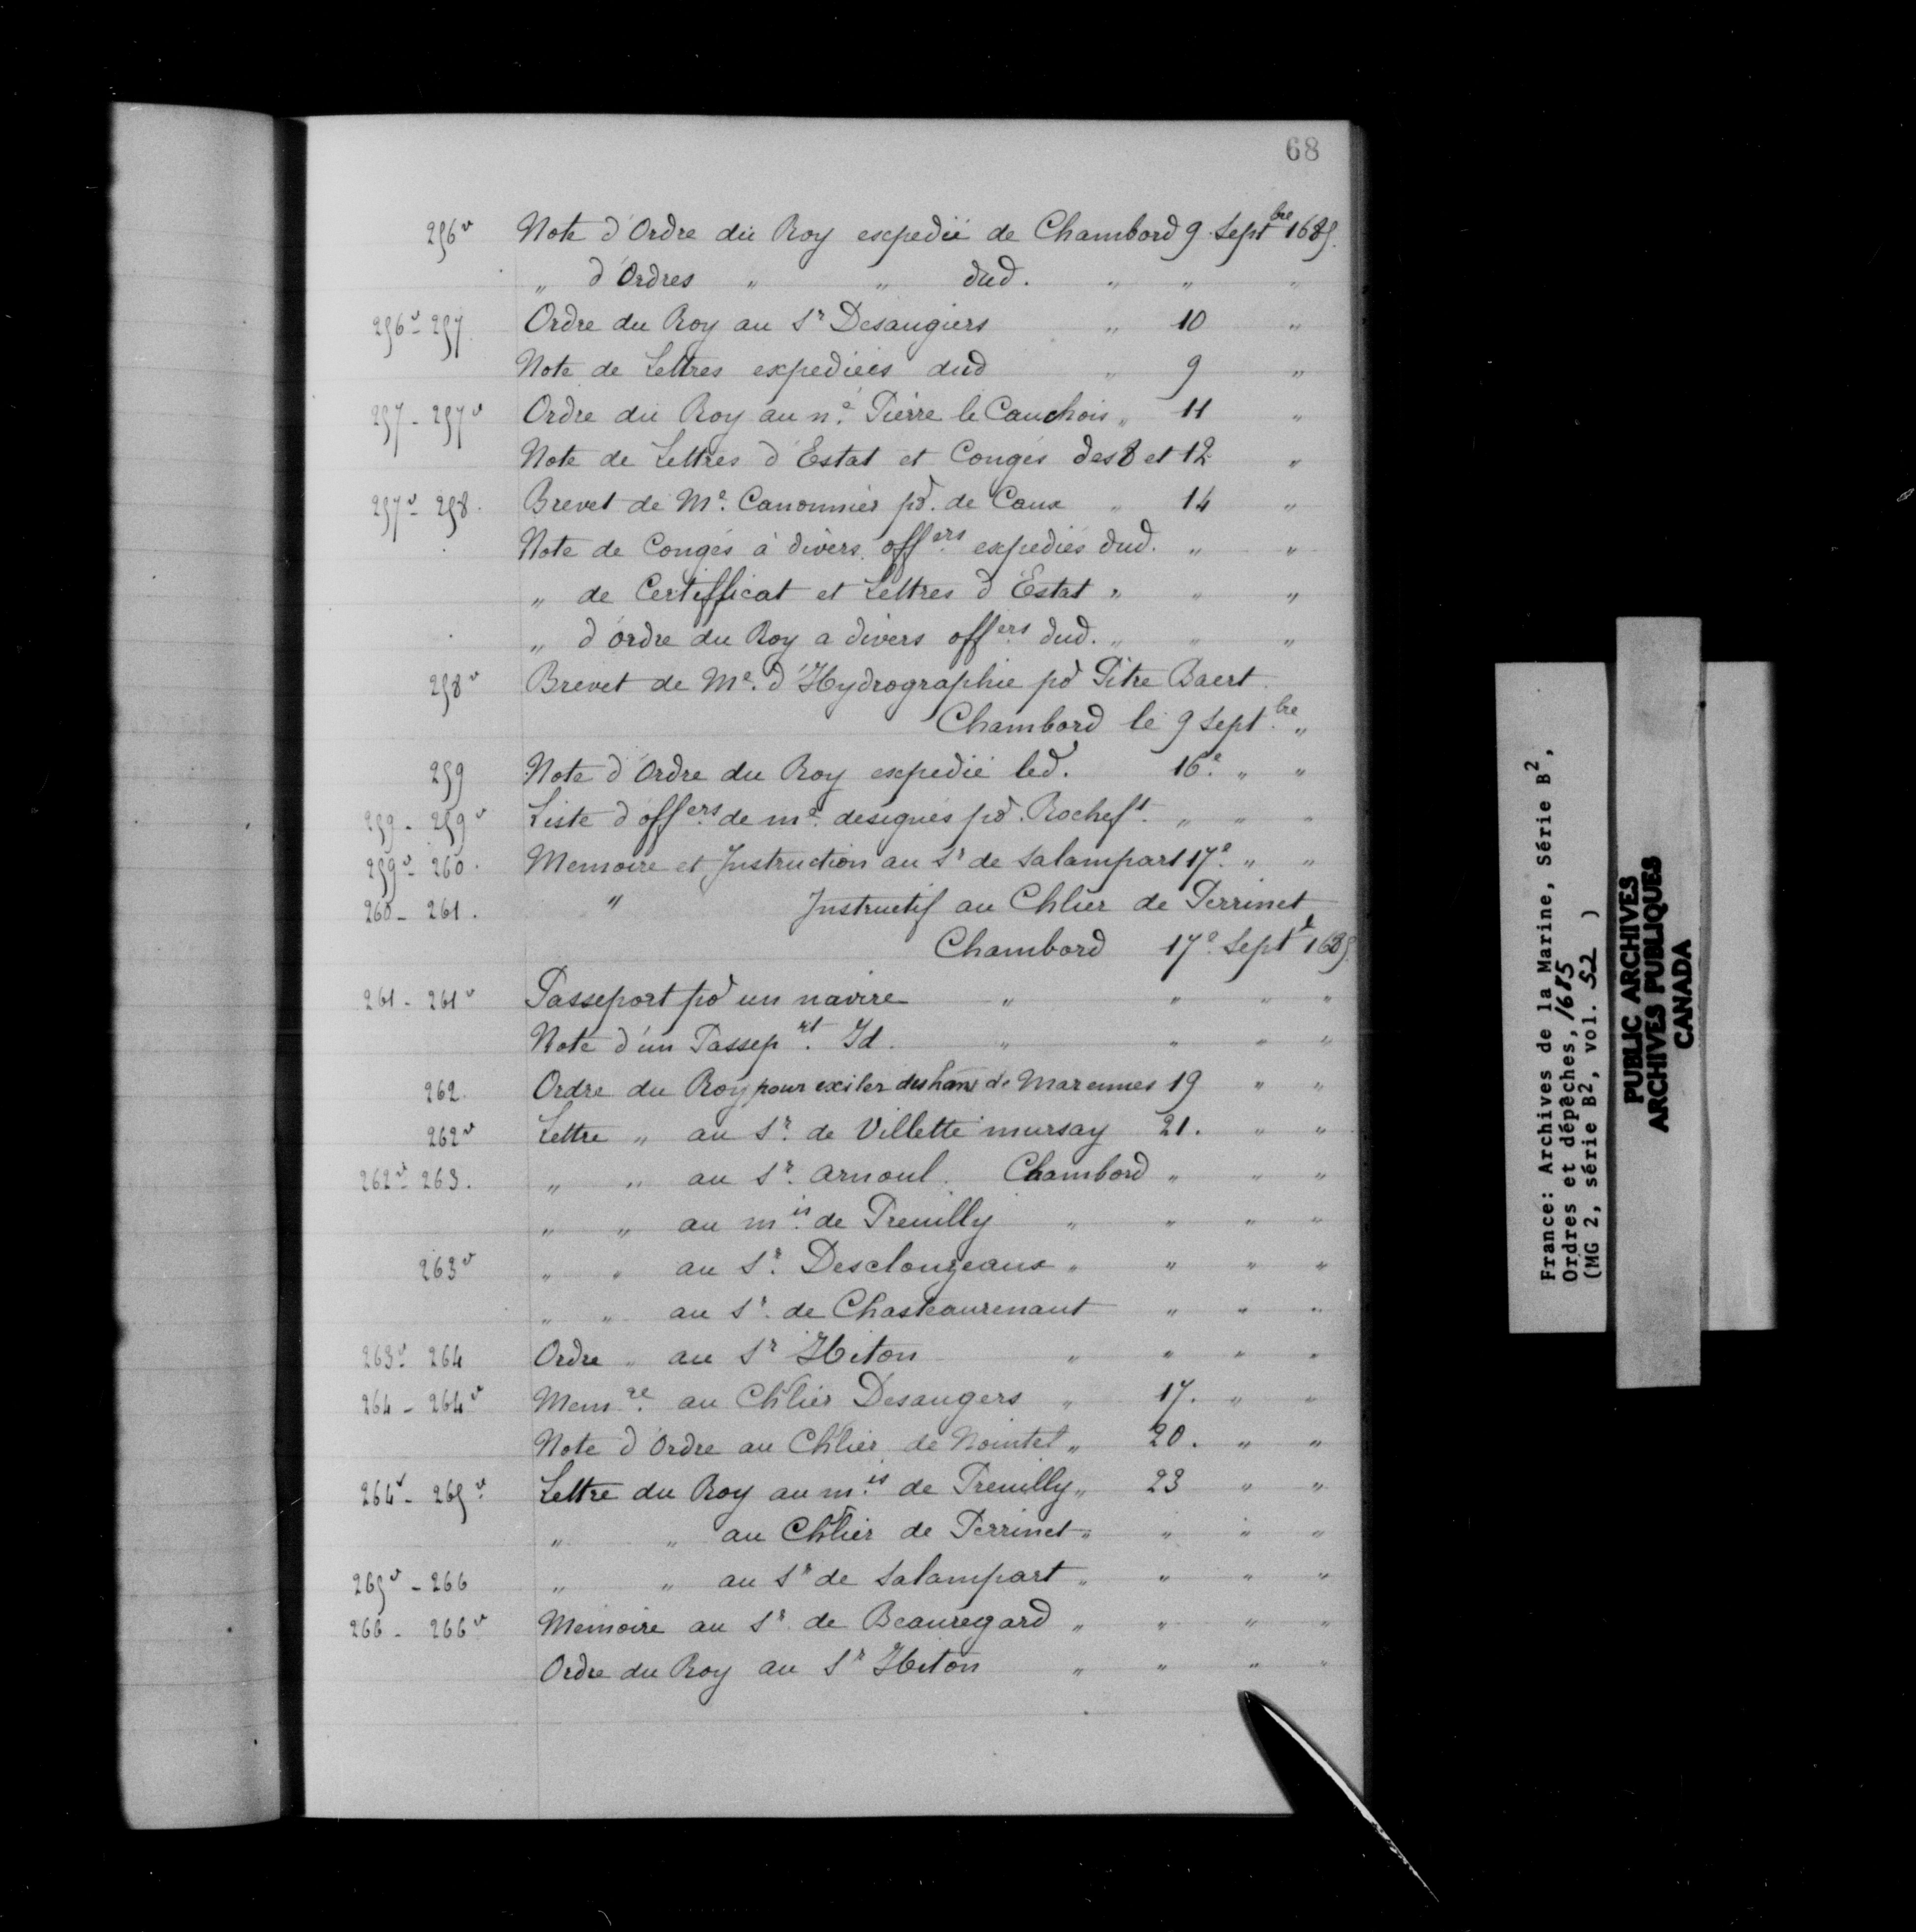 68
256v Note d'Ordre du Roy expedié de Chambord 9 Septbre 1685.
„ d'Ordres „ „ dud. „ „ „
256v - 257 Ordre du Roy au Sr Desaugiers „ 10 „
Note de Lettres expediées dud „ 9 „
257 - 257v Ordre du Roy au né Pierre le Cauchois „ 11 „
Note de Lettres d'Estat et Congés des 8 et 12 „
257v - 258. Brevet de Me. Canonnier pr. de Caux „ 14 „
Note de Congés à divers offers expediés dud. „ „
„ de Certifficat et Lettres d'Estat „ „ „
„ d'ordre du Roy a divers offers dud. „ „ „
258v Brevet de Me. d'Hydrographie pr Pitre Baert
Chambord le 9 Septbre „
259 Note d'Ordre du Roy expedié led. 16e. „ „
259 - 259v Liste d'offers de me. designés pr. Rocheft. „ „ „
259v - 260. Memoire et Instruction au Sr de Salampart 17e. „ „
260 - 261. „ Instructif au Chlier de Perrinet
Chambord 17e. Septe 1685.
261 - 261v Passeport pr un navire „ „ „ „
Note d'un Passeprt. Id. „ „ „ „
262. Ordre du Roy pour exiler des hans de Marennes 19 „ „
262v Lettre „ au Sr. de Villette mursay 21. „ „
262v - 263. „ „ au Sr. Arnoul. Chambord „ „ „
„ „ au mis. de Preuilly „ „ „ „
263v „ „ au Sr. Desclouzeaux „ „ „ „
„ „ au Sr. de Chasteaurenaut „ „ „
263v - 264 Ordre „ au Sr Hiton „ „ „ „
264 - 264v Memre. au Chlier Desaugers „ 17. „ „
Note d'Ordre au Chlier de Nointel „ 20. „ „
264v - 265v. Lettre du Roy au mis. de Preuilly „ 23 „ „
„ „ au Chlier de Perrinet „ „ „ „
265v - 266 „ „ au Sr de Salampart „ „ „ „
266 - 266v Memoire au Sr. de Beauregard „ „ „ „
Ordre du Roy au Sr Hiton „ „ „ „
France: Archives de la Marine, Série B2,
Ordres et dépêches, 1685
(MG 2, série B2, vol. 52 )
PUBLIC ARCHIVES
ARCHIVES PUBLIQUES
CANADA